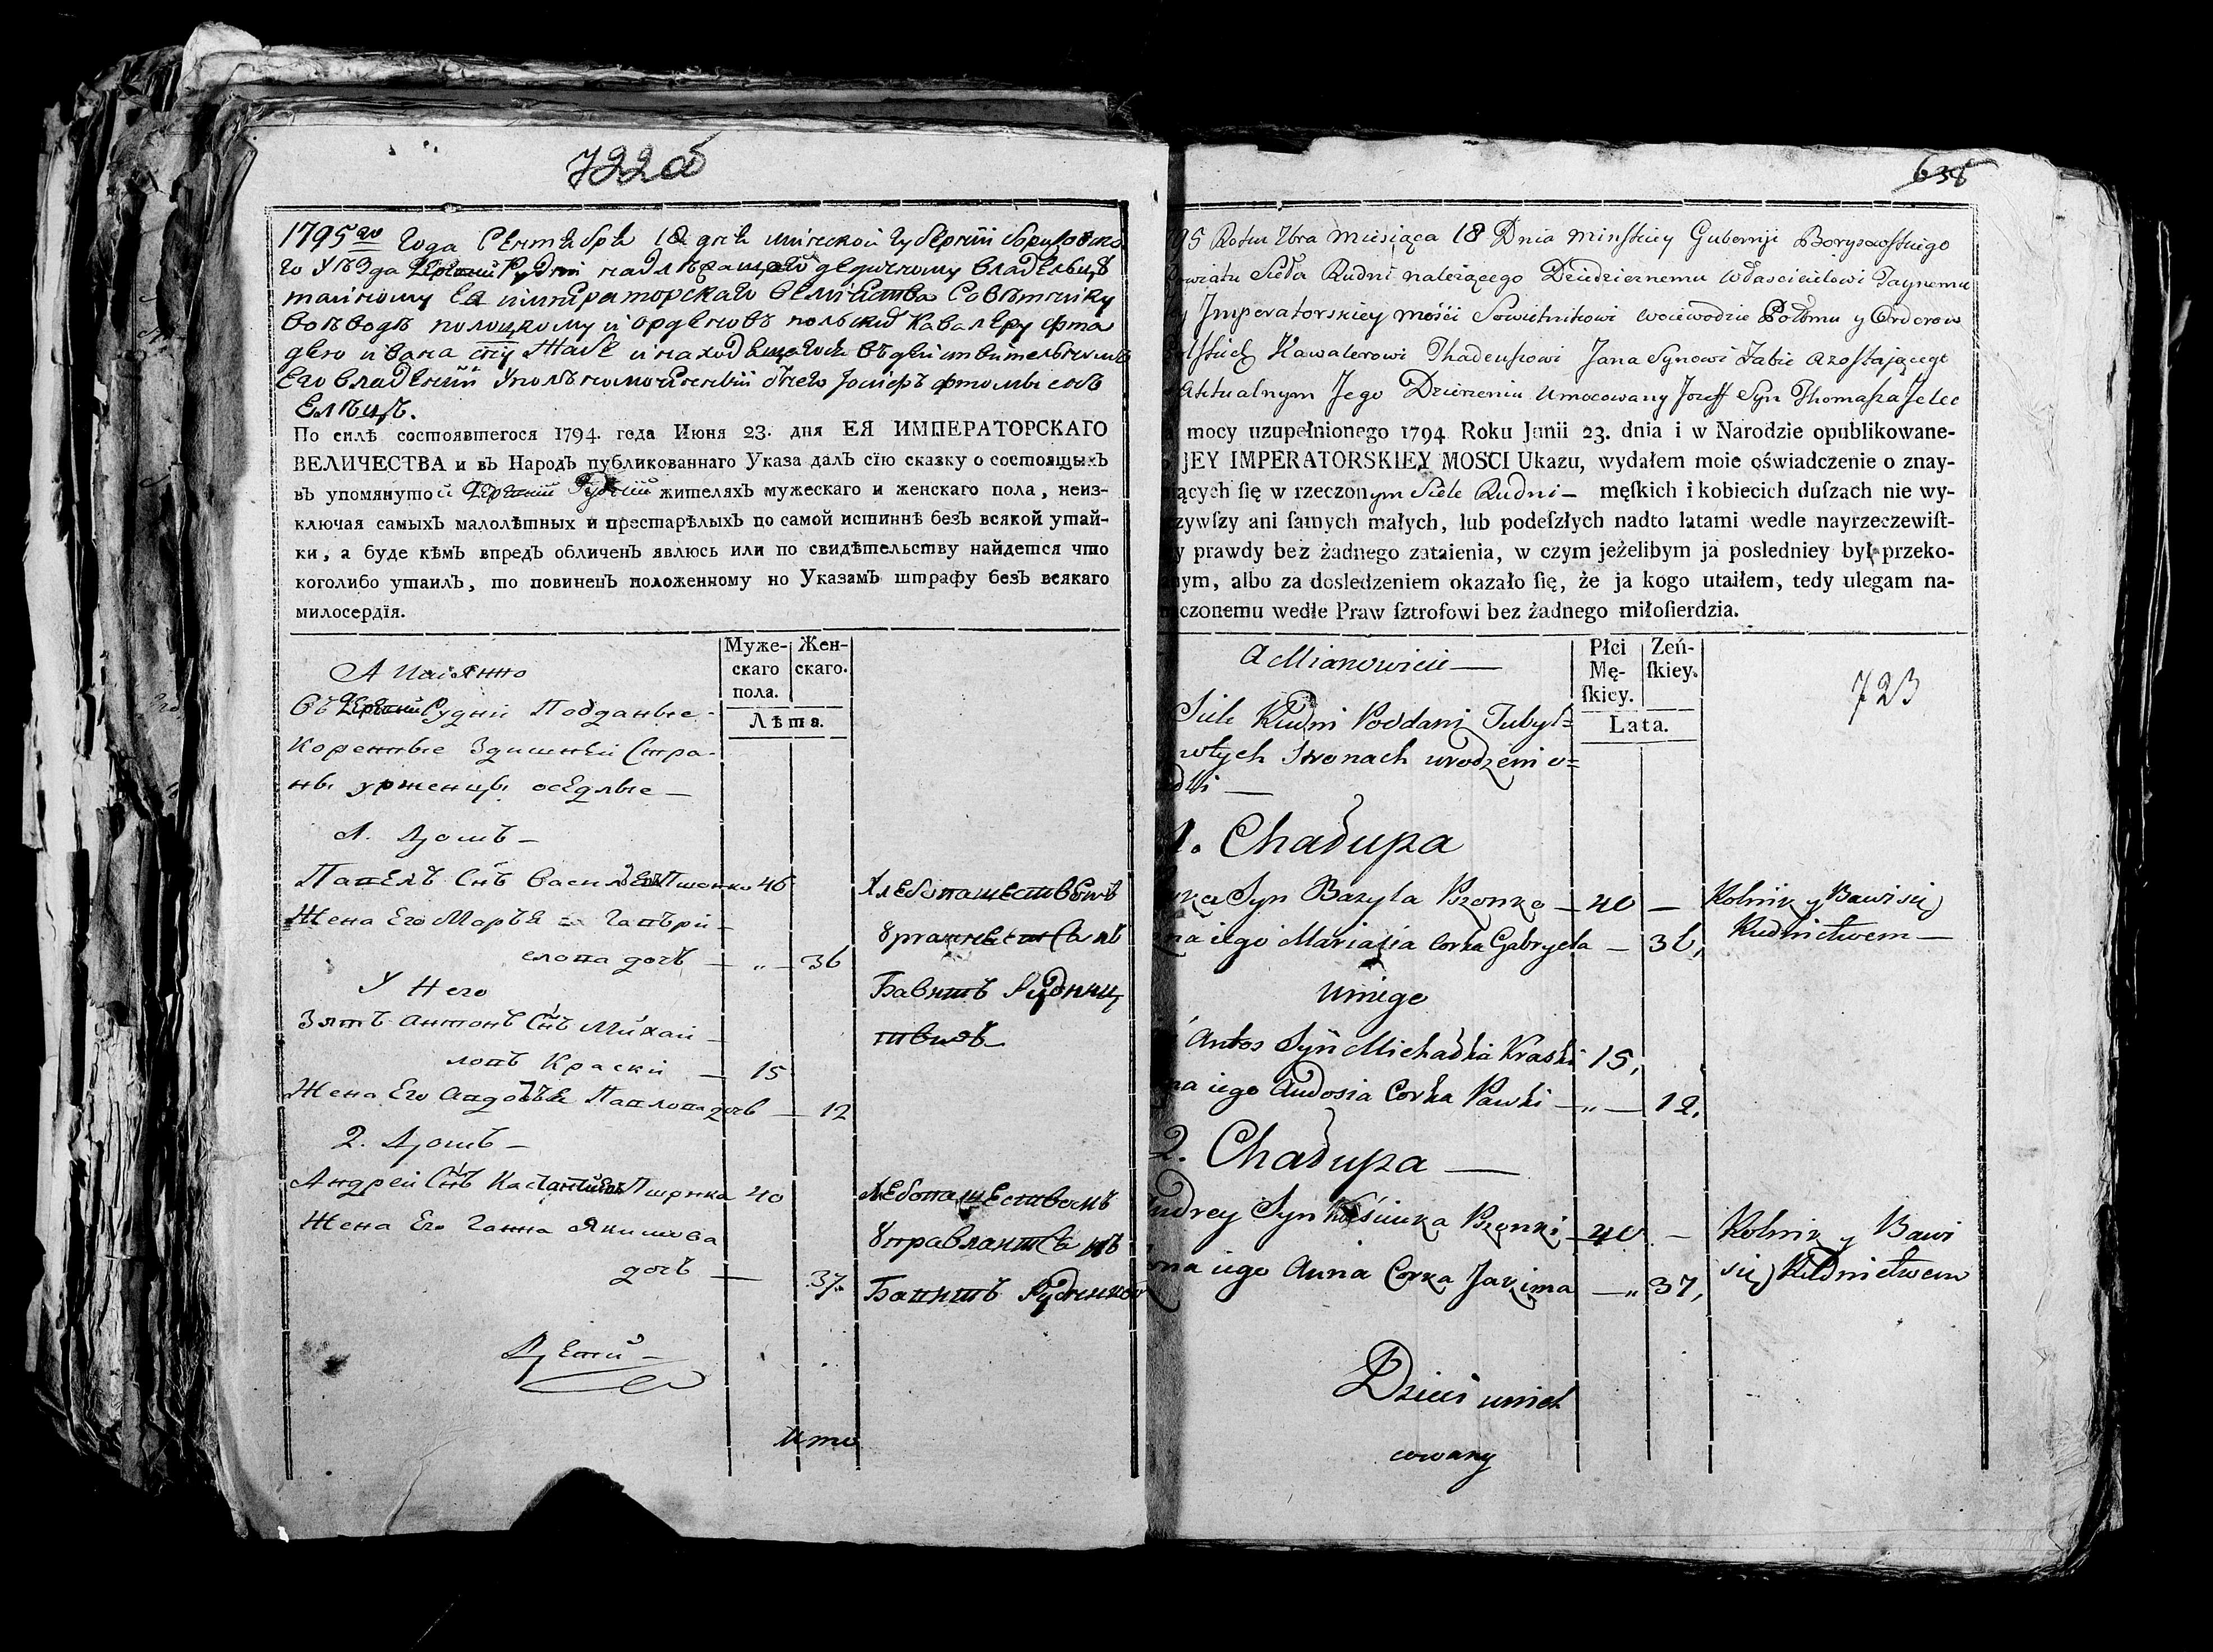 722 об
1795 го Года Сентября 18 дня минской губернии борисовско
го уезда деревни Рудни надлежащей дедичному владельцу
тайному Ея императорскаго величества Советнику
воеводе полоцкому и орденовъ польскихъ Кавалеру
ивана сну Жабе и находящагося въ действительномъ
Его владении уполномоченный
Елецъ.
По силѣ состоявшегося 1794. года Июня 23. дня ЕЯ ИМПЕРАТОРСКАГО
ВЕЛИЧЕСТВА и въ Народъ публикованнаго Указа далъ сїю сказку о состоящыхъ
въ упомянутой деревни Рудни жителяхъ мужескаго и женскаго пола, неиз-
ключая самыхъ малолѣтныхъ и престарѣлыхъ по самой истиннѣ безъ всякой утай-
ки, а буде кѣмъ впредъ обличенъ явлюсь или по свидѣтельству найдется что
коголибо утаилъ, то повиненъ положенному но Указамъ штрафу безъ всякаго
милосердїя.
А Имянно
Муже-
скаго
пола.
Жен-
скаго.
Лѣта.
въ деревни Рудни Подданые
Коренные Здишней Стра-
ны урженцы оседлые —
1. Домъ —
Павелъ Снъ Василевъ Пшонко 46
Хлебопашествомъ
Жена Его Марья Гавъри-
елова дочъ — „ — 36
У Него
Бавитъ Рудниц
Зять антонъ Снъ Михаи-
твомъ
ловъ Краски — 15
Жена Его Авдотья Павлова дочъ — 12
2. Домъ —
Андрей Снъ Пшонка 40
Хлебопашествомъ
Жена Его Ганна Якимова
дочъ — 37.
Бавитъ
Дети —
Ито
638
723
95 Roku 7bra Miesiąca 18 Dnia Minskiey Gubernji Borysowskiego
owiatu Sioła Rudni należącego Dziedzicznemu Włascicielowi Taynemu
Jmperatorskiey mości Sowietnikowi woiewodzie Połomu y Orderow
olskich Kawalerowi Thadeuszowi Jana Synowi Żabie azostającego
Aktualnym Jego Dzierżeniu Umocowany Jozeff Syn Thomasza Jelec
mocy uzupełnionego 1794 Roku Junii 23. dnia i w Narodzie opublikowane-
JEY IMPERATORSKIEY MOSCI Ukazu, wydałem moie oświadczenie o znay-
iących ſię w rzeczonym Siele Rudni — męſkich i kobiecich duſzach nie wy-
zywſzy ani ſamych małych, lub podeſzłych nadto latami wedle nayrzeczewiſt-
y prawdy bez żadnego zataienia, w czym jeżelibym ja posledniey był przeko-
nym, albo za dosledzeniem okazało ſię, że ja kogo utaiłem, tedy ulegam na-
czonemu wedłe Praw ſztrofowi bez żadnego miłoſierdzia.
A Mianowicie —
Płci
Mę-
ſkiey.
Zeń-
ſkiey.
Lata.
Siele Rudni Poddani Tubyl=
wtych Stronach urodzeni o=
1. Chałupa
Syn Bazyla Pszonko — 40 —
Rolnik y Bawi się
na iego Marjasia Corka Gabryela — 36,
Rudnictwem —
u niego
Antos Syn Michałka Kraski 15,
na iego Audosia Corka Pawki — „ — 12,
2. Chałupa —
Andrey Syn Pszonki — 40 —
Rolnik y Bawi
ona iego Anna Corka Jakima — „ 37,
się Rudnictwem
Dzieci unich
cowany